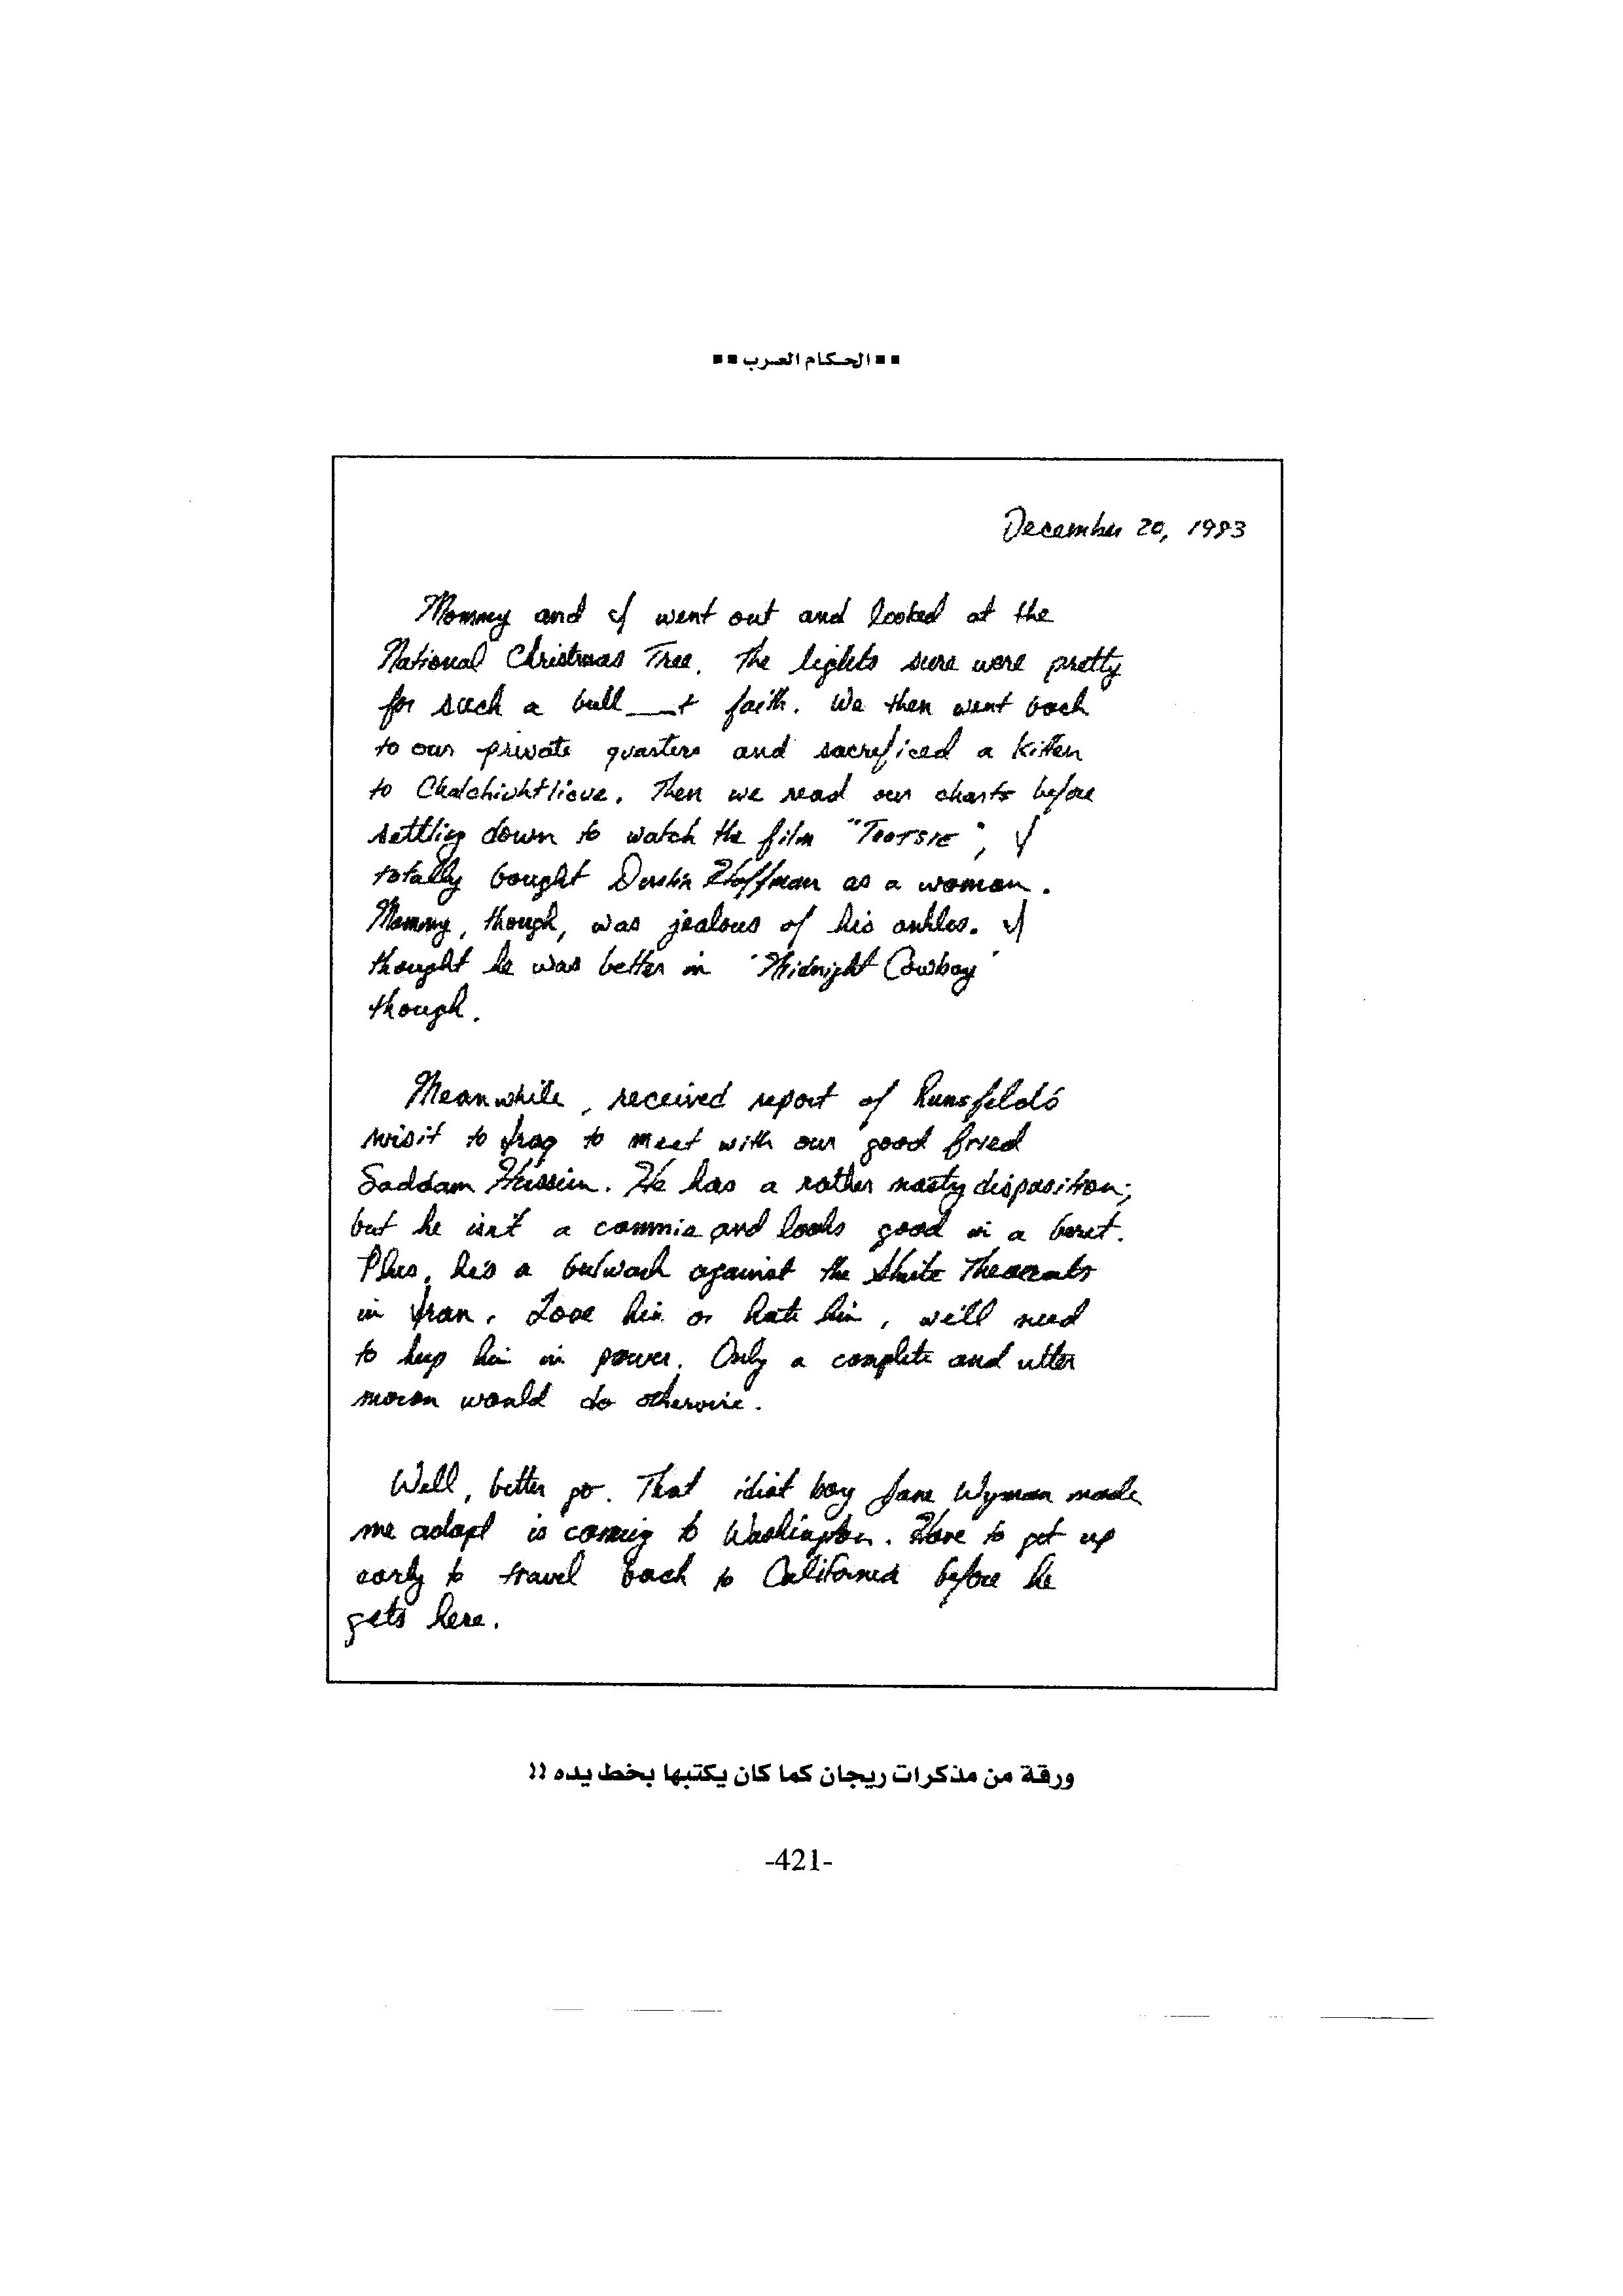 ■■ الحكام العرب ■■
December 20, 1983
Mommy and I went out and looked at the
National Christmas Tree. The lights sure were pretty
for such a bull___t faith. We then went back
to our private quarters and sacrificed a kitten
to Chalchiuhtlicue. Then we read our charts before
settling down to watch the film "TOOTSIE", I
totally bought Dustin Hoffman as a woman.
Mommy, though, was jealous of his ankles. I
thought he was better in "Midnight Cowboy"
though.
Meanwhile, received report of Rumsfeld's
visit to Iraq to meet with our good fried
Saddam Hussein. He has a rather nasty disposition;
but he isn't a commie and looks good in a beret.
Plus, he's a bulwark against the Shiite Theocrats
in Iran. Love him or hate him, we'll need
to keep him in power. Only a complete and utter
moron would do otherwise.
Well, better go. That idiot boy Jane Wyman made
me adopt is coming to Washington. Have to get up
early to travel back to California before he
gets here.
ورقة من مذكرات ريجان كما كان يكتبها بخط يده !!
-421-